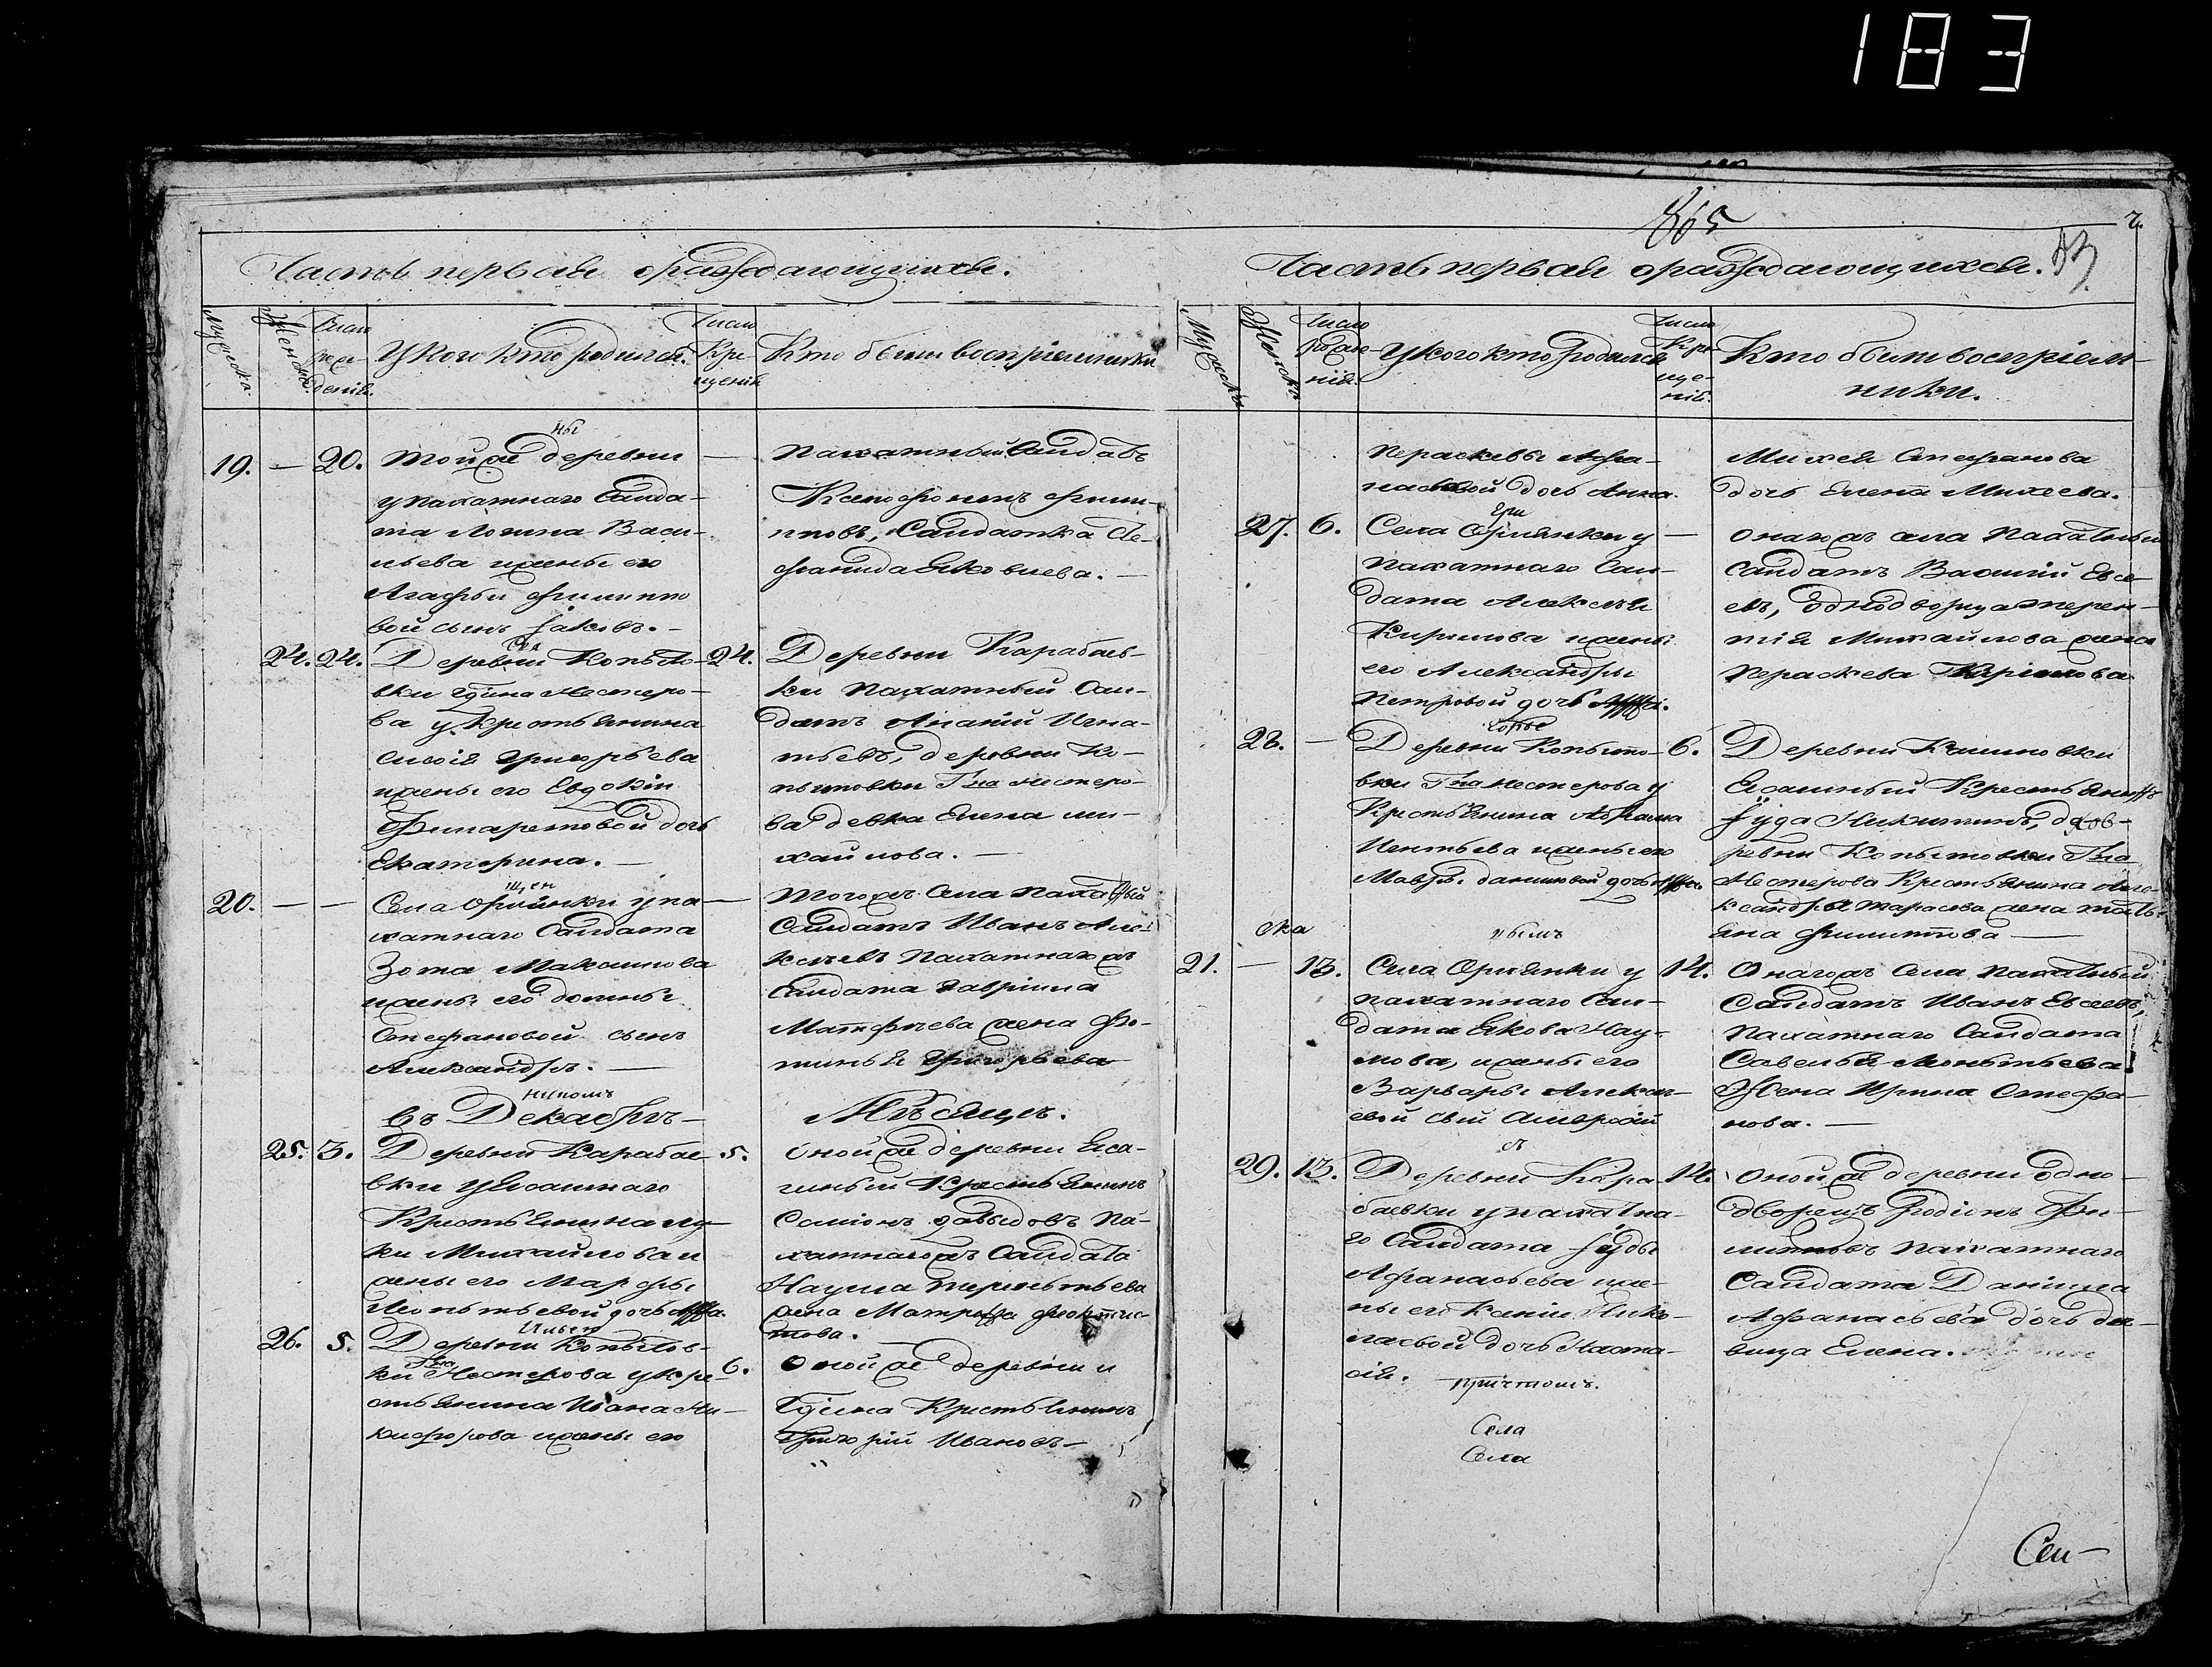 183
865
Часть первая орождающихся.
Мужеска.
Женска.
Число рождения.
У кого кто родился.
Число крещения
Кто были восприемники
19. — 20.
Той же деревни
у пахатнаго Салда-
та Логина Васи-
льева и жены его
Агафьи Филиппо
вой сынъ Іаковъ.
—
Пахатный Салдатъ
Ксенофонтъ Филип-
повъ, Салдатка Сте-
фанида Яковлева. —
24. 24.
Деревни
вки Гдина Нестеро-
ва у крестьянина
Григорьева
и жены его Евдокіи
Филаретовой дочь
Екатерина. —
24.
Деревни Карабаев-
ки пахатный Сал-
датъ Ананій Игна-
тьевъ, деревни Ко-
пытовки Гна Нестеро-
ва девка Елена Ми-
хайлова. —
20. — —
Села у па-
хатнаго Салдата
Зота Максимова
и жены его Домны
Стефановой сынъ
Александръ. —
—
Того жъ Села Пахатный
Салдатъ Иванъ Але-
ксеевъ пахатнаго жъ
Салдата Гавріила
Матфѣева жена Фо-
тинья Григорьева
въ Декабрѣ —
Мѣсяцѣ.
25. 3.
Деревни Карабае
вки у Ясашнаго
Крестьянина Лу-
ки Михайлова и
жены его Марфы
Леонтьевой дочь
5.
Оной же деревни Яса-
шный Крестьянинъ
Семіонъ Давыдовъ Па-
хатнаго жъ Салдата
Наума Терентьева
жена Матрона
26. 5.
Деревни
ки Гна Нестерова у кре-
стьянина Ивана Ни-
кифорова и жены его
6.
Оной же деревни и
Гдина Крестьянинъ
Григорій Ивановъ —
Часть первая орождающихся.
Мужеска
Женска
Число рожде-
нія.
У кого кто родился
Число Кре-
ще-
нія.
Кто были воспріем-
ники.
Параскевы Афа-
насьевой дочь Анна.
Михея Стефанова
дочь Елена Михеева.
27. 6.
Села у
пахатнаго Сал-
дата Алексѣя
Кирилова и жены
его Александры
Петровой дочь
—
Онаго жъ села Пахатный
Салдатъ Василій Евсе-
евъ, Однодворца терен-
тія Михайлова жена
Параскева
28. —
Деревни Копыто-
вки Гна Нестерова у
Крестьянина Абрама
и жены его
Мавры Даниловой дочь
6.
Деревни
Ясашный Крестьянинъ
Іуда Никитинъ, де-
ревни Копытовки Гна
Нестерова Крестьянина Але-
ксандра Тарасова жена Татья-
яна Филиппова —
21. — 13.
Села у
пахатнаго Сал-
дата Якова Нау-
мова, и жены его
Варвары Алексѣ-
евой сынъ Амвросій
14.
Онаго жъ Села Пахатный
Салдатъ Иванъ Евсеевъ,
Пахатнаго Салдата
Савелья Леонтьева
Жена Ирина Стефа-
нова. —
29. 13.
Деревни Кара
баевки у пахатна-
го Салдата Іуды
Афанасьева и же-
ны его Ксеніи Нико-
лаевой дочь Наста-
сія.
14.
Оной же деревни Одно-
дворецъ Родіонъ Фи-
липповъ пахатнаго
Салдата Даніила
Афанасьева дочь дѣ-
вица Елена.
причтомъ.
Села
Села
Сем-